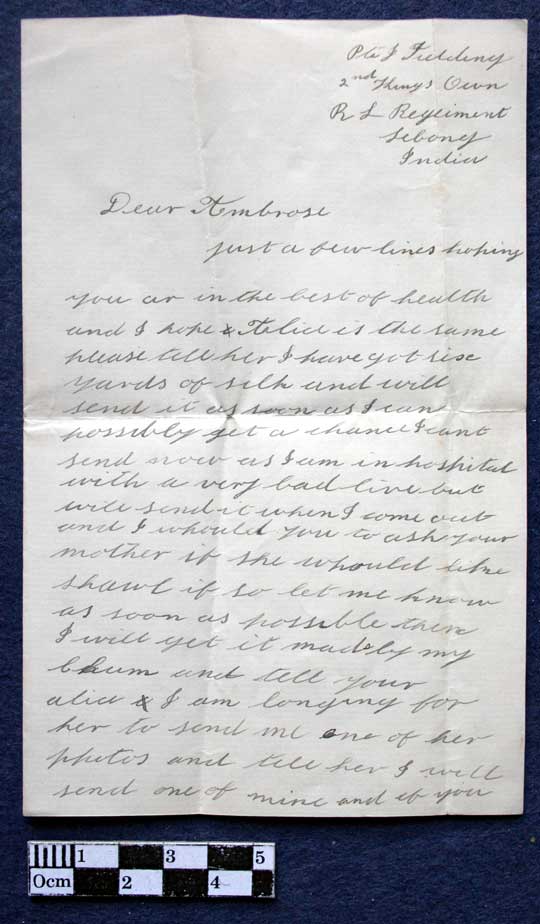 Pte J Fielding
2nd Kings Own
R L Regiment
Lebong
India
Dear Ambrose
just a few lines hoping
you ar in the best of health
and I hope Alice is the same
please tell her I have got six
yards of silk and will
send it as soon as I can
possibly get a chance I cant
send now as I am in hospital
with a very bad live but
will send it when I come out
and I whould you to ask your
mother if she whould like
shawl if so let me know
as soon as possible then
I will get it made by my
chum and tell your
alice I am longing for
her to send me one of her
photos and tell her I will
send one of mine and if you
0cm 1 2 3 4 5